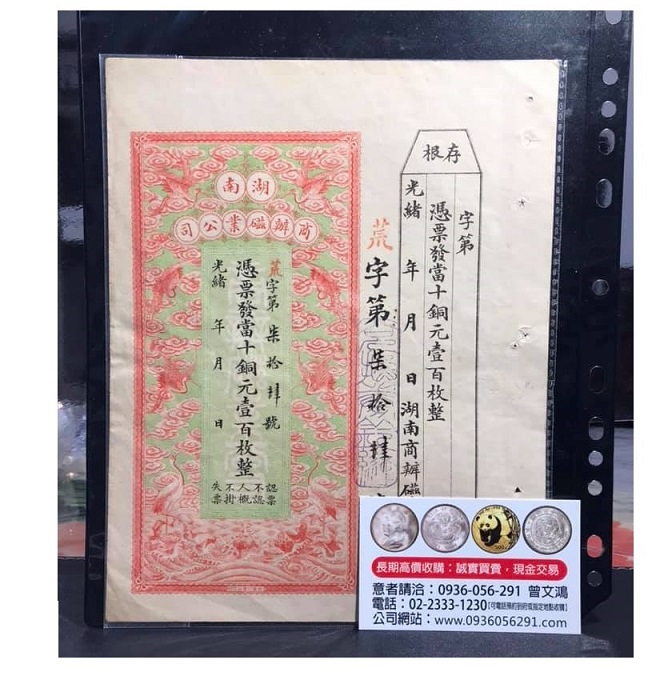 湖南
商辦磁業公司
荒字第柒拾肆號
憑票發當十銅元壹百枚整
光緒 年 月 日
認票不認人概不掛失票
存根
字第
憑票發當十銅元壹百枚整
光緒 年 月 日湖南商辦磁
荒字第柒拾肆
長期高價收購：誠實買賣，現金交易
意者請洽：0936-056-291 曾文鴻
電話：02-2333-1230
公司網站：www.0936056291.com